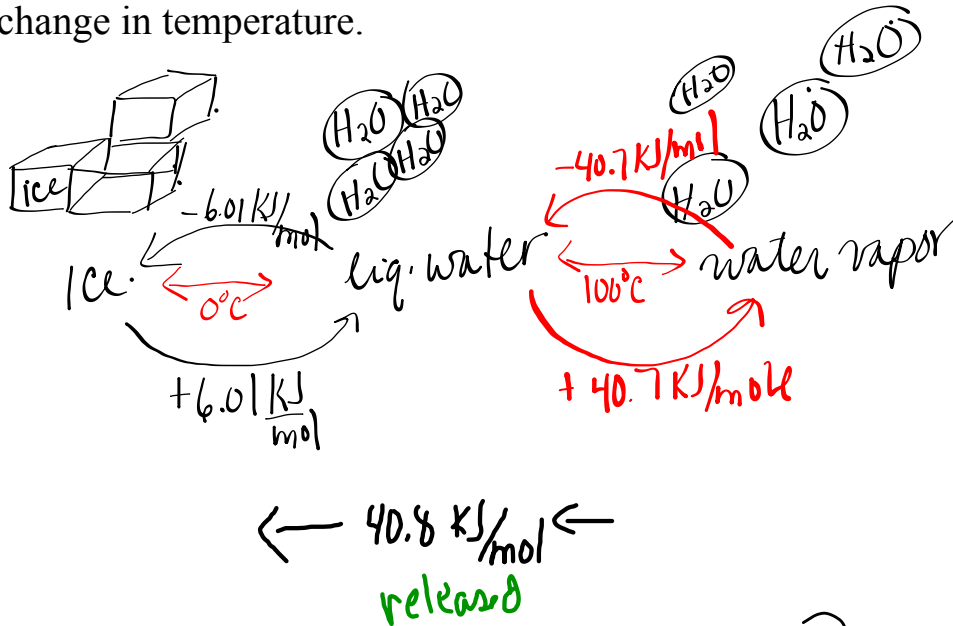 change in temperature.
H₂O
H₂O
H₂O
H₂O
H₂O
H₂O
H₂O
H₂O
ice
-6.01 KJ/mol
-40.7 KJ/mol
Ice.
0°C
liq. water
100°C
water vapor
+6.01 KJ/mol
+ 40.7 KJ/mole
40.8 KJ/mol
released